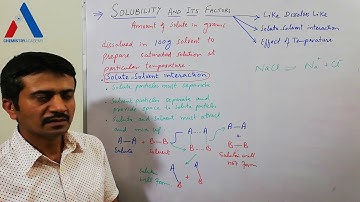 CHEMISTRY ACADEMY
⇒ SOLUBILITY AND ITS FACTORS
Amount of Solute in grams
dissolved in 100g solvent to
prepare saturated solution at
particular temperature
Like Dissolves Like
Solute-Solvent interaction
Effect of Temperature
NaCl Na+ + Cl-
Solute-Solvent interaction
Solute particles must separate
Solvent particles separate and
provide space to solute particles
Solute and solvent must attract
and mix up
A—A + B—B
Solute Solvent
A—A
B—B
A—A
+
B—B
Solution will not form
Solution will form
A A
B B